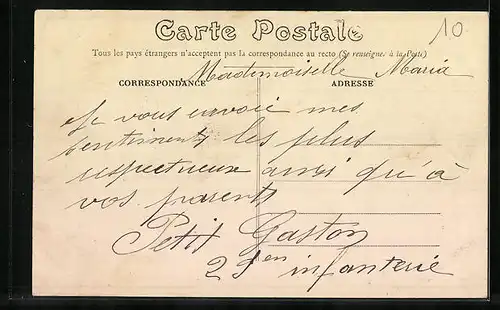 10
Carte Postale
Tous les pays étrangers n'acceptent pas la correspondance au recto (Se renseigner à la Poste)
Mademoiselle Maria
CORRESPONDANCE ADRESSE
Je vous envoie mes
sentiments les plus
respectueux ainsi qu'à
vos parents
Petit Gaston
29en infanterie